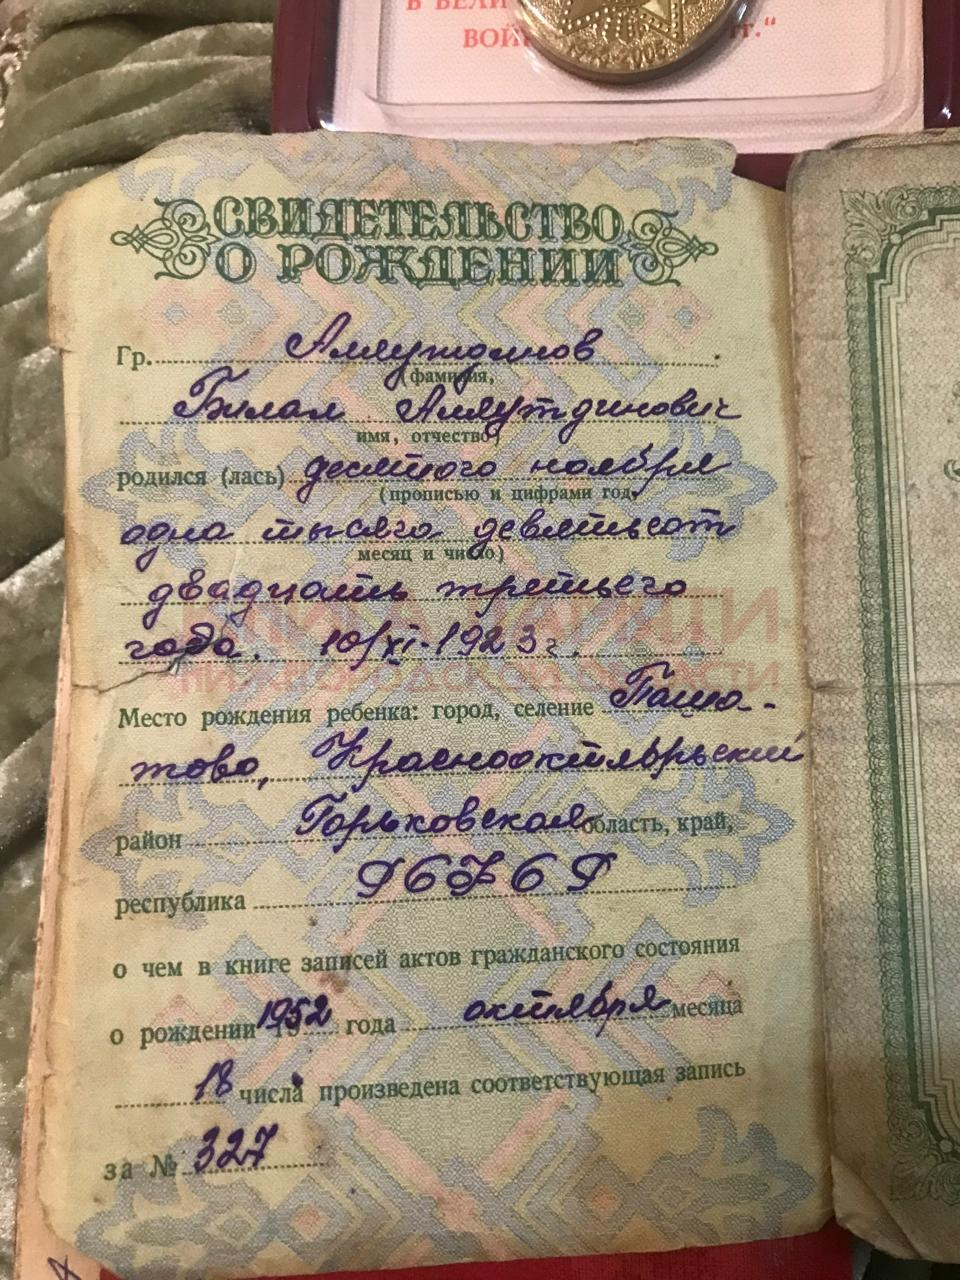 В ВЕЛИ
ВОЙ гг.“
СВИДЕТЕЛЬСТВО
О РОЖДЕНИИ
Гр. Аляутдинов
(фамилия,
Билал Аляутдинович
имя, отчество)
родился (лась) десятого ноября
(прописью и цифрами год,
одна тысяча девятьсот
месяц и число.)
двадцать третьего
года. 10/XI-1923 г.
КНИГА ПАМЯТИ
НИЖЕГОРОДСКОЙ ОБЛАСТИ
Место рождения ребенка: город, селение Паша-
тово, Краснооктябрьский
район Горьковская область, край,
республика
о чем в книге записей актов гражданского состояния
о рождении 1952 года октября месяца
18 числа произведена соответствующая запись
за № 327